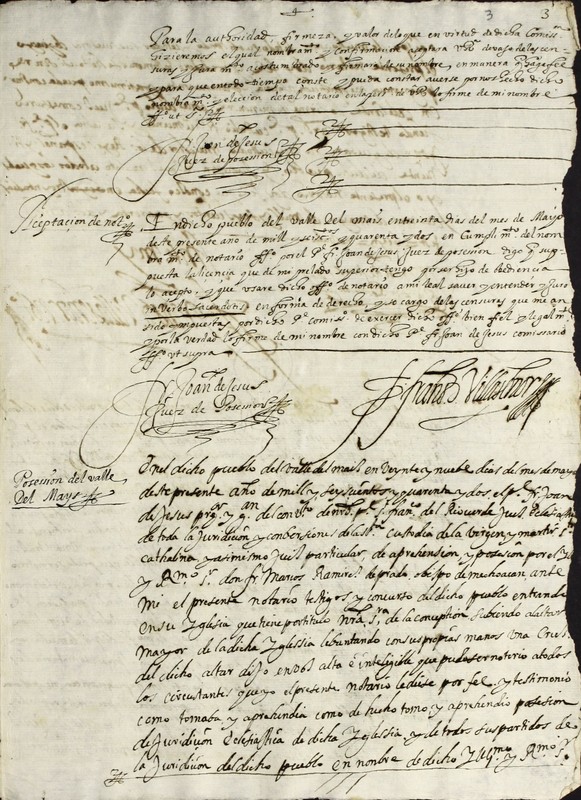 3 3
Para la authoridad, firmeza, y valor de lo que en virtud de dicha Comiss.
hizieremos el qual nombram.to y confirmam.te aceptara V.R. devajo de las cen-
suras y jura m.to acostumbrado y firmara de su nombre, en manera q haga fee
y para que en todo tiempo conste y pueda constar averse por nos hecho dicho
nombram.to y eleccion de tal notario lo firme de mi nombre
ff.o ut s.
fr Joan de Jesus
Juez de Posession
Aceptacion de not.o
En dicho pueblo del valle del mais en treinta dias del mes de Mayo
deste presente ano de mill y seis.tos y quarenta y dos, en Cumplim.to del nom
bram.to de notario ff.o por el P.e fr Joan de Jesus Juez de posesion. digo q sup-
puesta la licencia que de mi prelado superior tengo por ser hijo de obediencia
lo acepto, y que usare dicho off.o de notario a mi leal saver y entender y juro
in Verbo sacerdotis, en forma de derecho, y so cargo de las censuras que me an
sido impuestas por dicho P.e comiss.o de exercer dicho off.o bien fiel y legalm.te
y por la verdad lo firme de mi nombre con dicho P.e fr Joan de Jesus comissario
ff.o ut supra
fr Joan de Jesus
Juez de Posesion
fr Fran.co Villa
Posesion del valle
Del Mays
En el dicho pueblo del valle del mais en veynte y nuebe dias del mes de mayo
deste presente año de mill y seyscientos y quarenta y dos, el p.e fr Joan
de Jesus y g.an del con.to de n.ro p.e s. fran.co del Rioverde Juez
de toda la Juridicion y conbersiones de la s.ta Custodia de la virgen y martir s.ta
cathalina y asimismo Juez particular de aprehension y posesion por el
y R.mo s.r don fr Marcos Ramires de prado obispo de mechoacan, ante
mi el presente notario testigos y concurso del dicho pueblo entrando
en su yglesia que tiene por titulo n.ra s.ra de la conception subiendo al altar
mayor de la dicha yglessia lebantando con sus propias manos una Crus
del dicho altar dijo en vos alta e inteligible que pudo ser noterio a todos
los circustantes que yo el presente notario le diese por fee y testimonio
como tomaba y aprehendia como de hecho tomo y aprehendio posesion
de Juridicion eclesiastica de dicha yglessia y de todos sus partidos de
la Juridicion del dicho pueblo en nonbre de dicho yll.mo y R.mo s.r